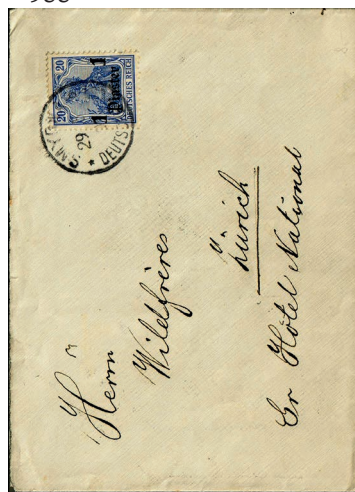 20 20
1 1
DEUTSCHES REICH
SMYR
29
* DEUTS
Herrn
Wildfrères
Zürich
Hôtel National